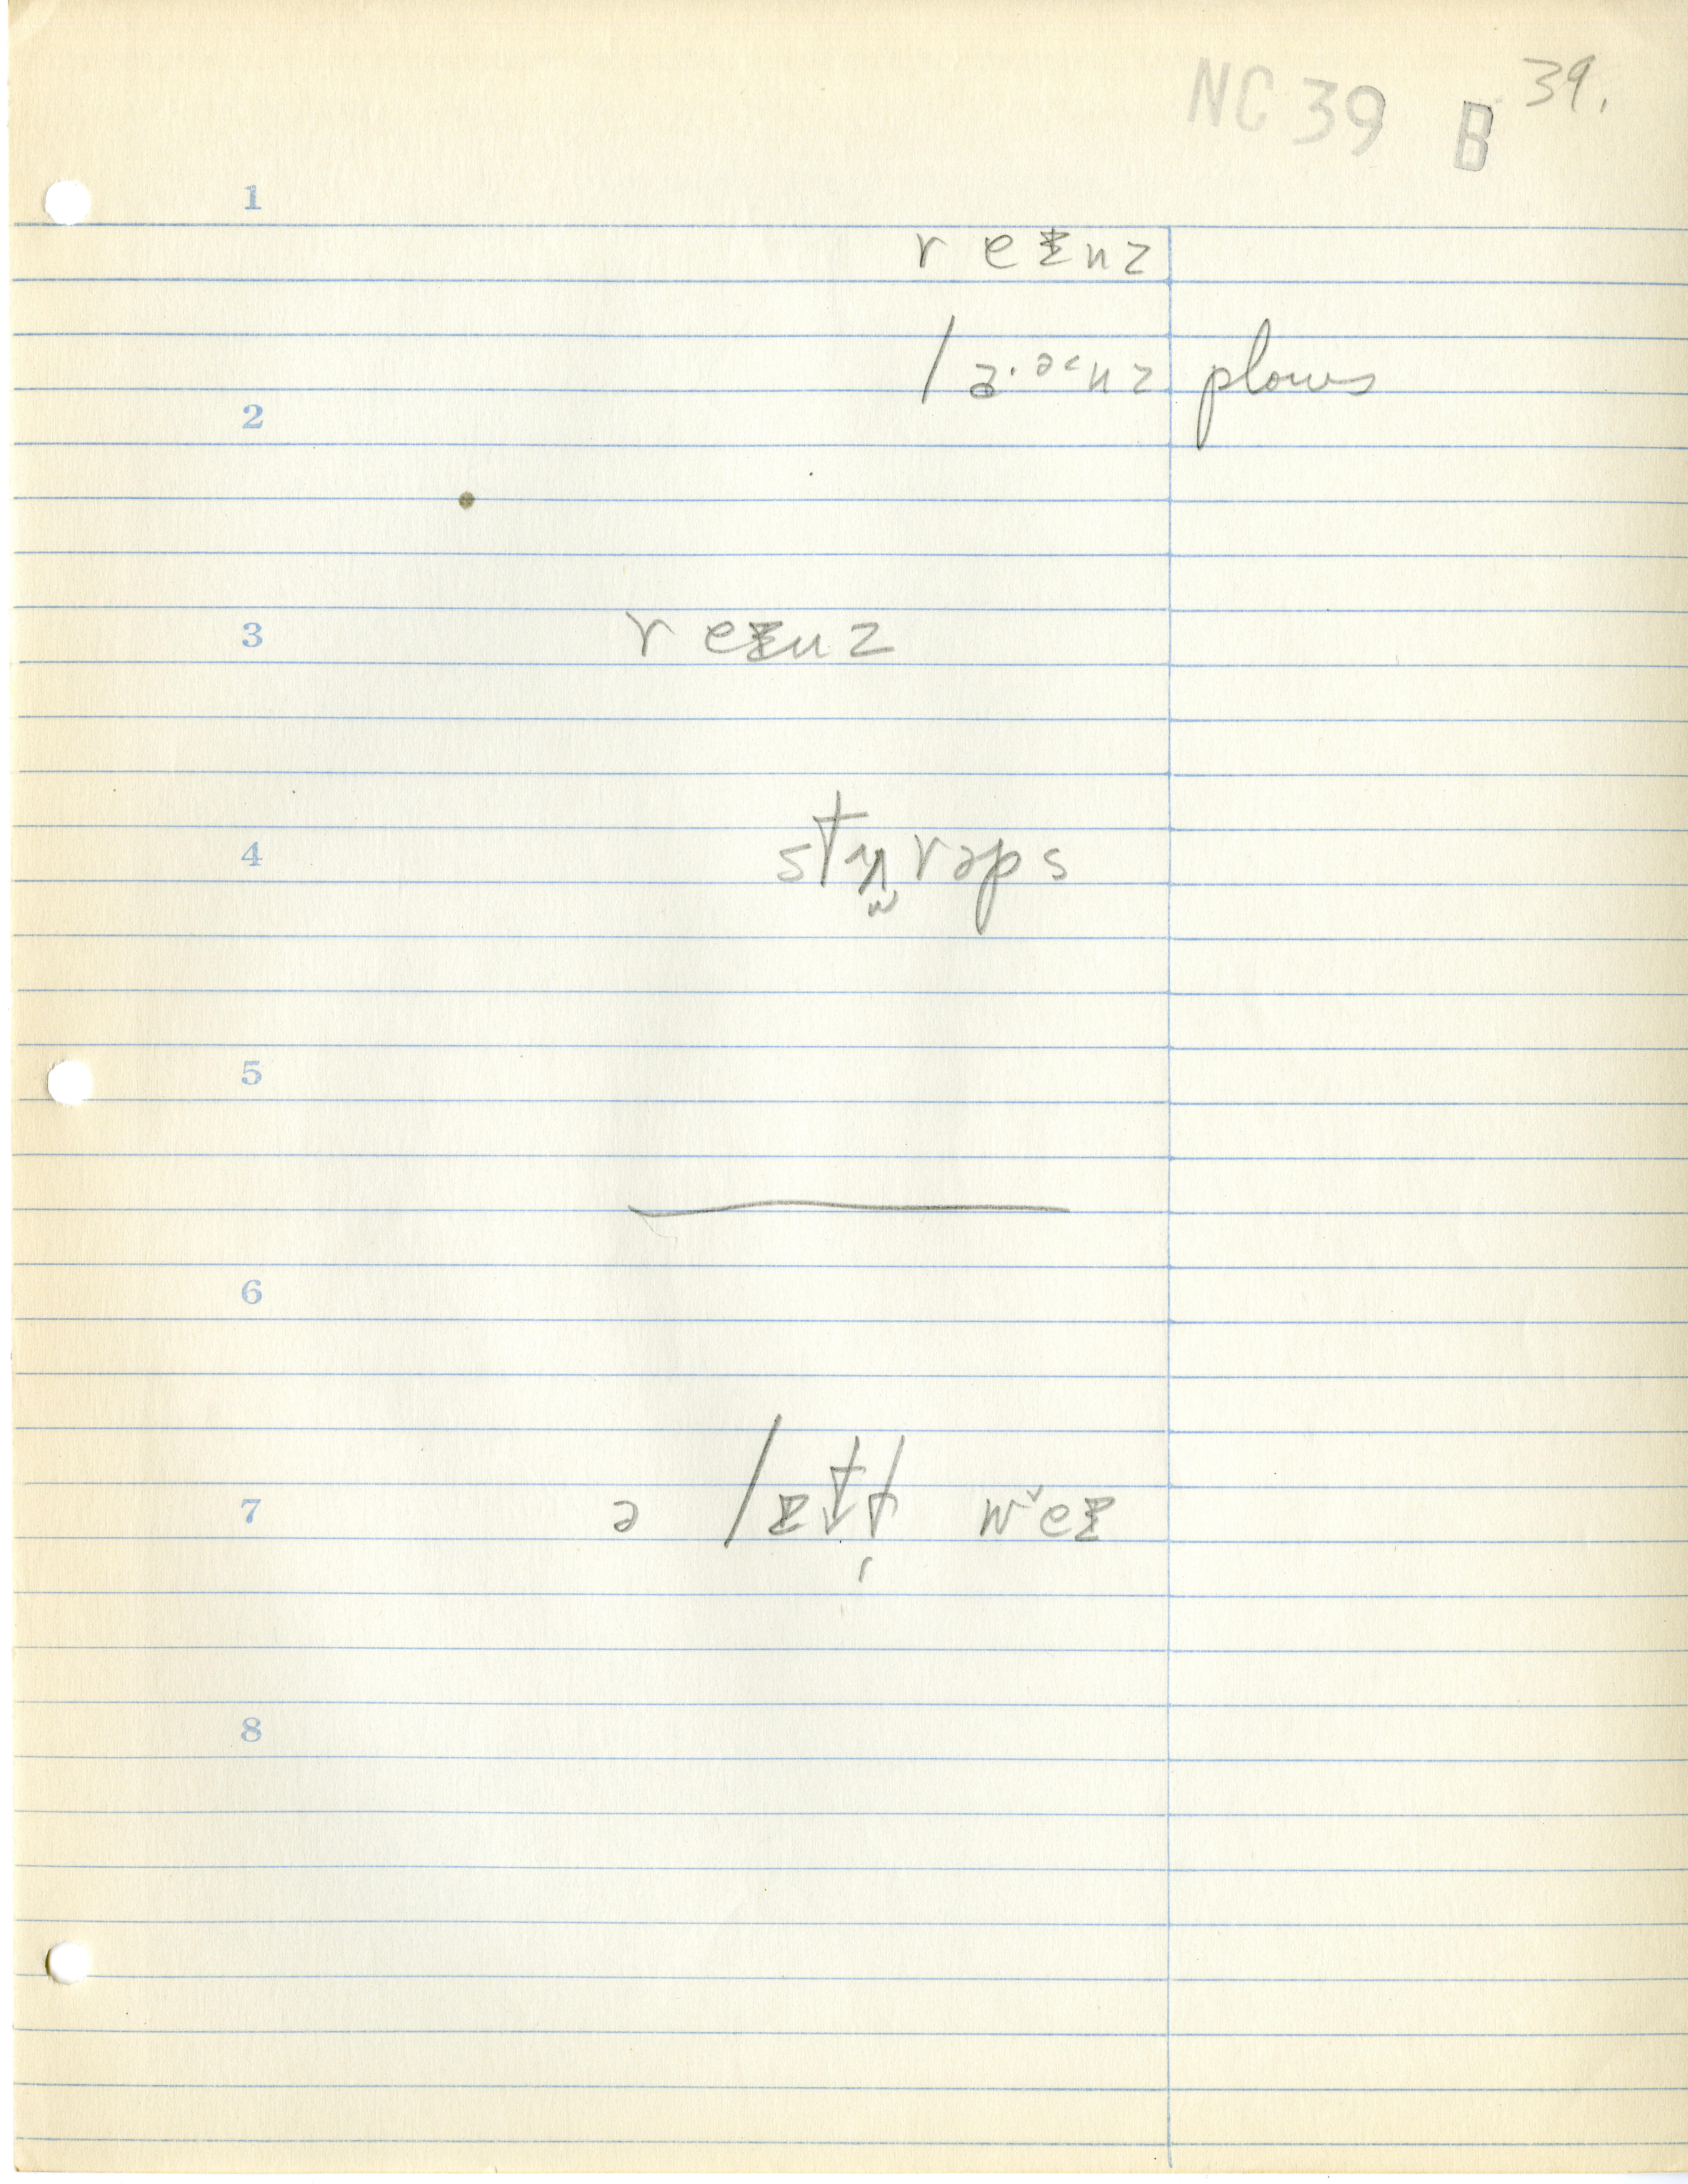 NC 39 B 39.
1
r eɪnz
/ə·ə˂nz plows
2
3
r eɪnz
4
stɪrəps
5
6
7
ə /ɪtɫ weɪ
8